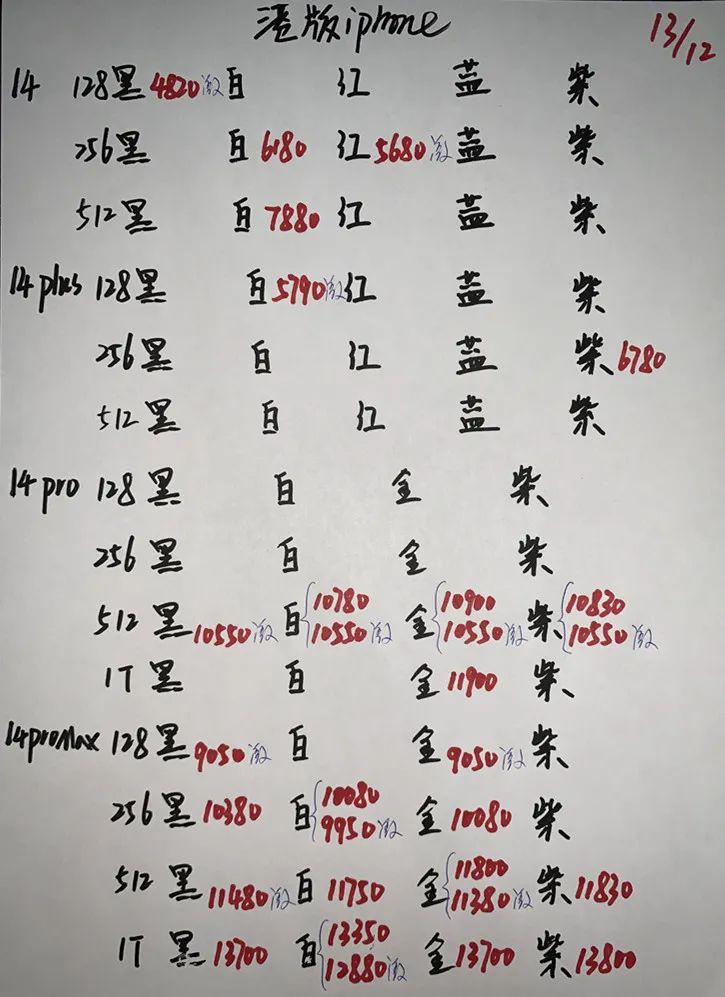 港版iphone 13/12
14 128黑4820激 白 红 蓝 柴
256黑 白6180 红5680激 蓝 柴
512黑 白7880 红 蓝 柴
14plus 128黑 白5790激 红 蓝 柴
256黑 白 红 蓝 柴6780
512黑 白 红 蓝 柴
14pro 128黑 白 金 柴
256黑 白 金 柴
512黑10550激 白{10780 10550激 金{10900 10550激 柴{10830 10550激
1T黑 白 金11900 柴
14proMax 128黑9050激 白 金9050激 柴
256黑10380 白{10080 9950激 金10080 柴
512黑11480激 白11750 金{11800 11380激 柴11830
1T黑13700 白{13350 12880激 金13700 柴13800